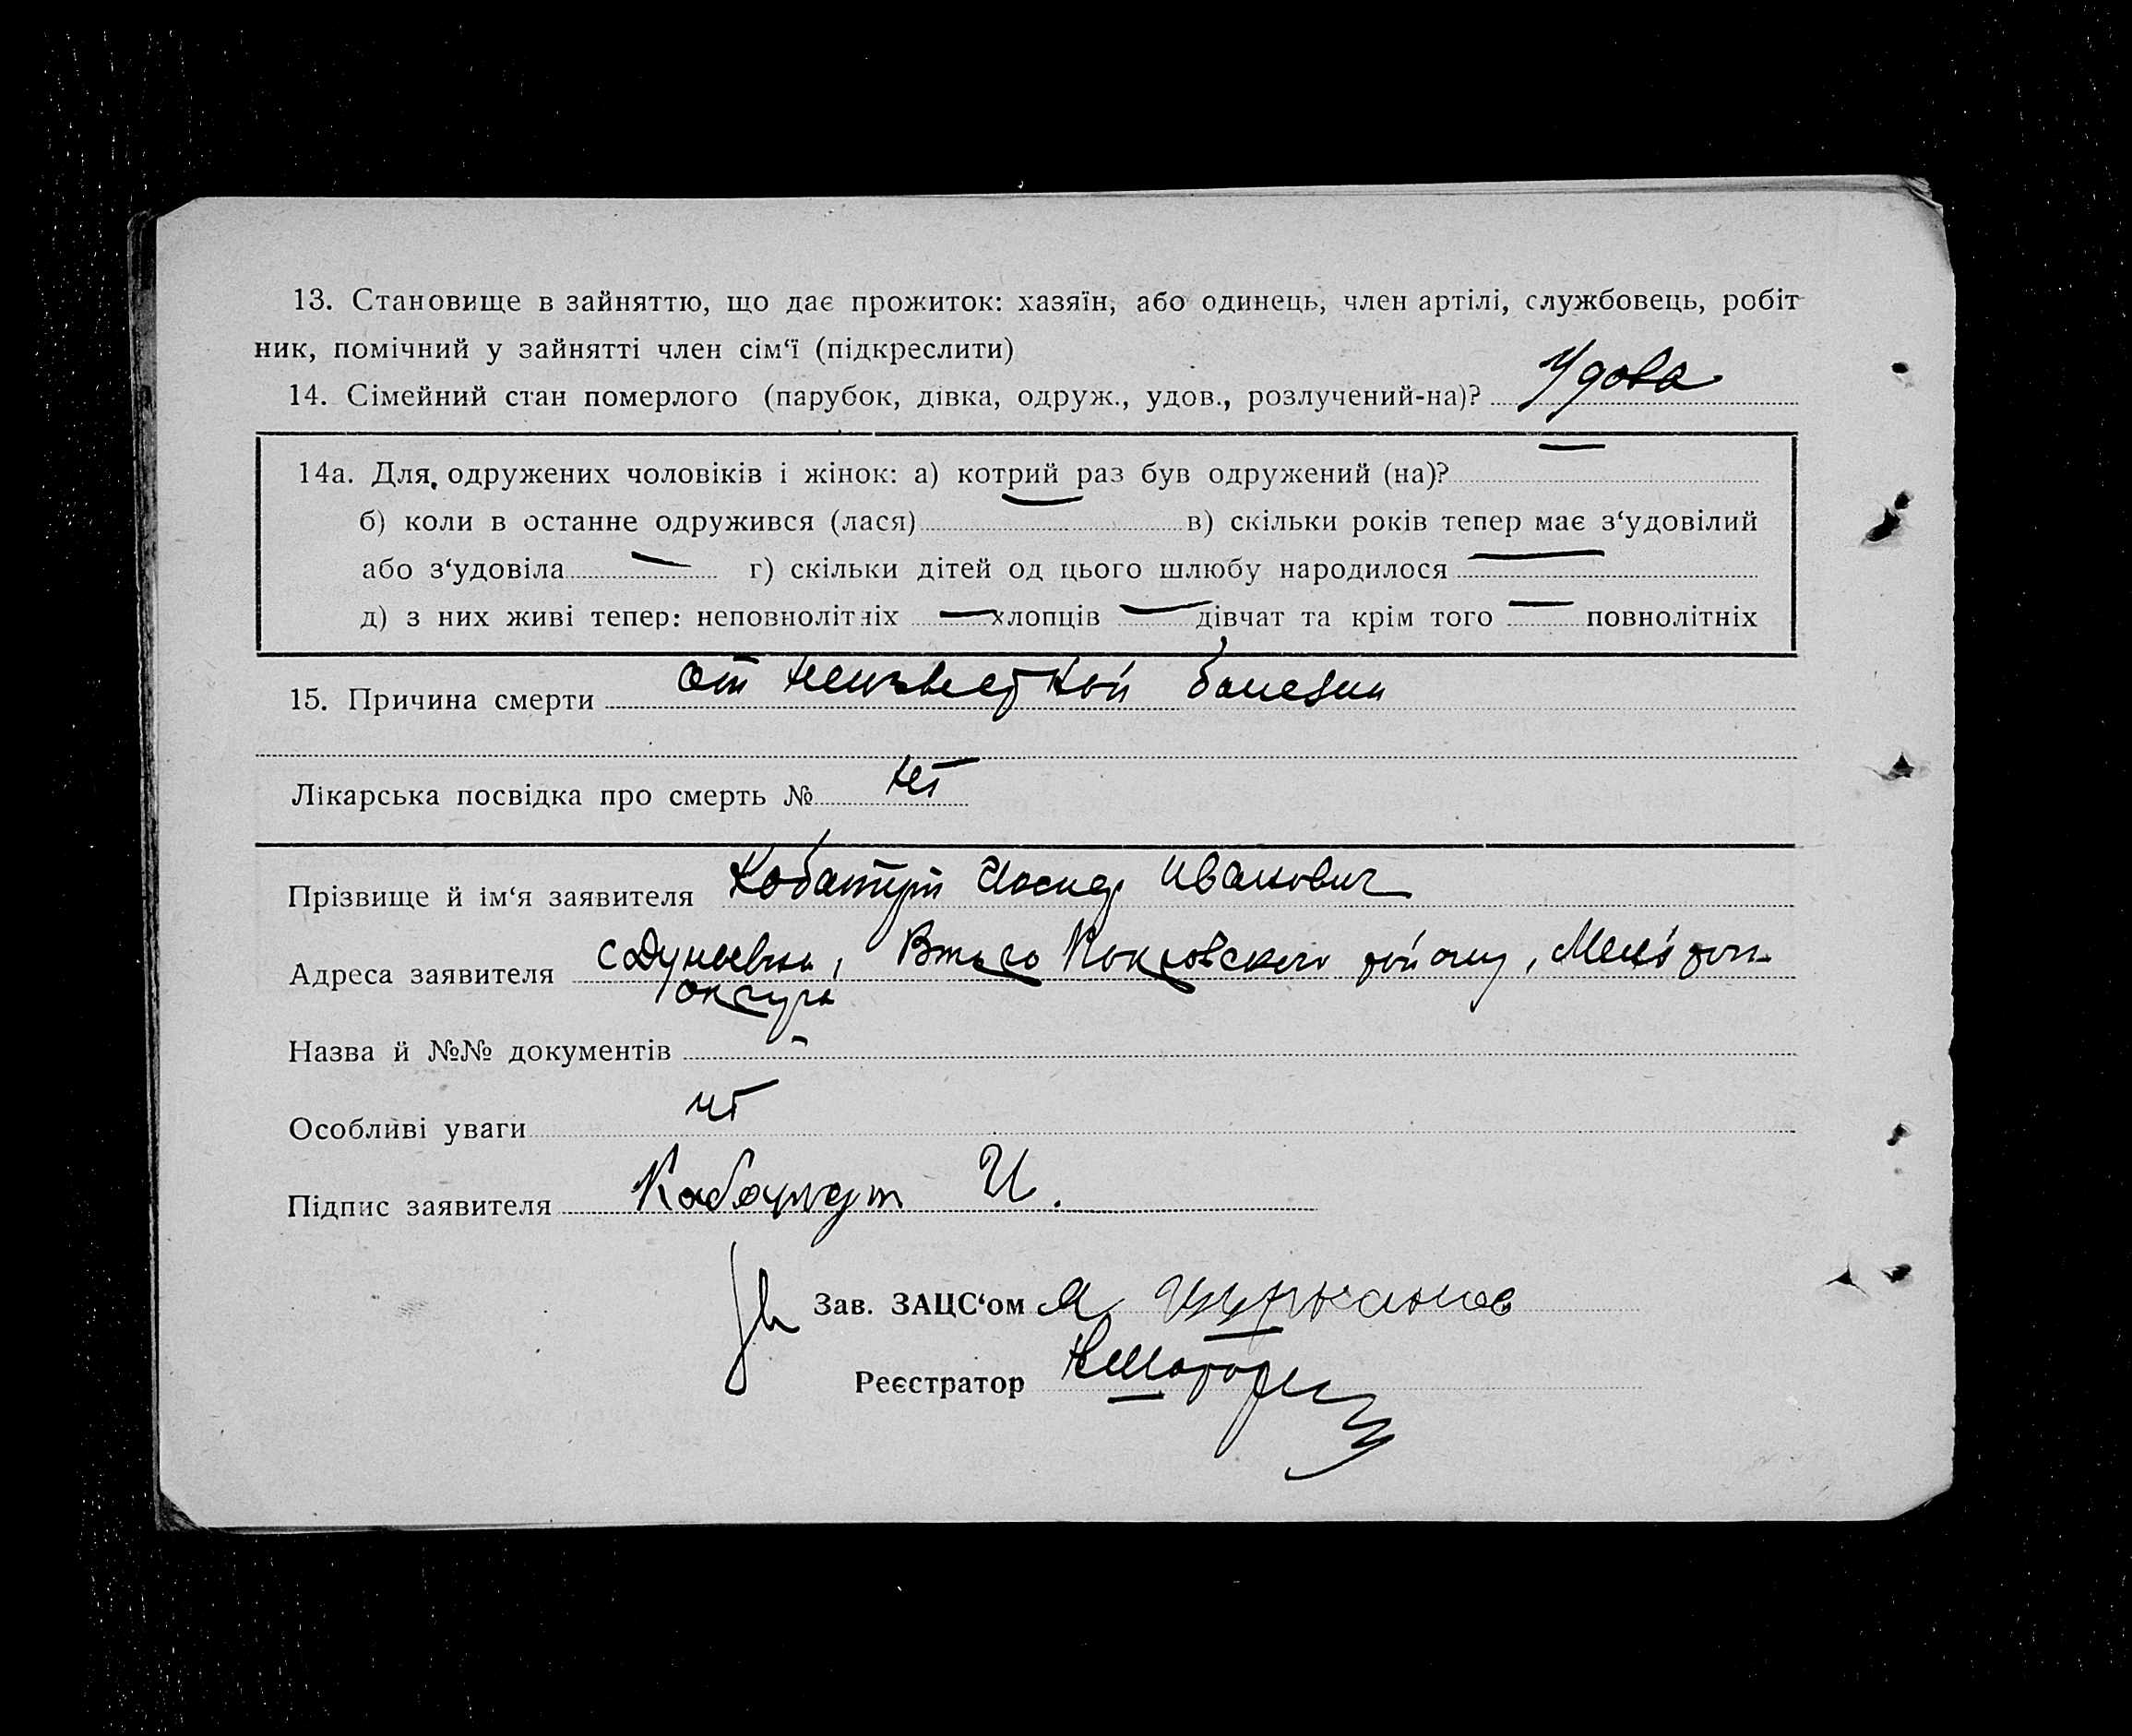 13. Становище в зайняттю, що дає прожиток: хазяїн, або одинець, член артілі, службовець, робіт
ник, помічний у зайнятті член сім‘ї (підкреслити)
14. Сімейний стан померлого (парубок, дівка, одруж., удов., розлучений-на)? Удова
14а. Для одружених чоловіків і жінок: а) котрий раз був одружений (на)? —
б) коли в останне одружився (лася) — в) скільки років тепер має з‘удовілий
або з‘удовіла — г) скільки дітей од цього шлюбу народилося —
д) з них живі тепер: неповнолітніх — хлопців — дівчат та крім того — повнолітніх
15. Причина смерти от неизвесткой болезни
Лікарська посвідка про смерть № нет
Прізвище й ім‘я заявителя Иванович
Адреса заявителя с Дунаевки, Покровского району,
округа
Назва й №№ документів -
Особливі уваги нет
Підпис заявителя И.
Зав. ЗАЦС‘ом
Реєстратор